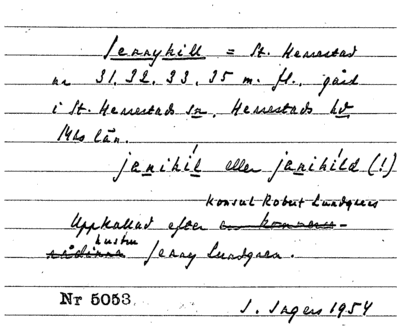 Jennyhill = St. Herrestad
nr 31, 32, 33, 35 m. fl., gård
i St. Herrestads sn, Herrestads hd,
Mhs län.
janihíl eller janihíld (!)
konsul Robert Lundgrens
Uppkallad efter en kommerse-
hustru
rådinna Jenny Lundgren.
Nr 5053
I. Ingers 1954